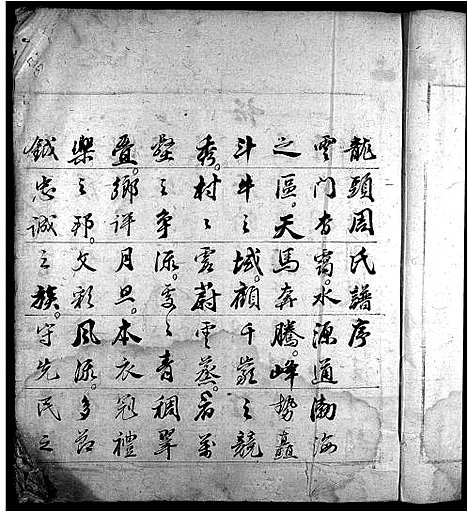 龍頭周氏譜序
雲門杳靄。水源通渤海
之區。天馬奔騰。峰勢矗
斗牛之城。顧千巖之競
秀。村村霞蔚雲蒸。看萬
壑之爭流。處處青稠翠
疊。鄉評月旦。本衣冠禮
樂之邦。文彩風流。多節
鉞忠誠之族。守先民之